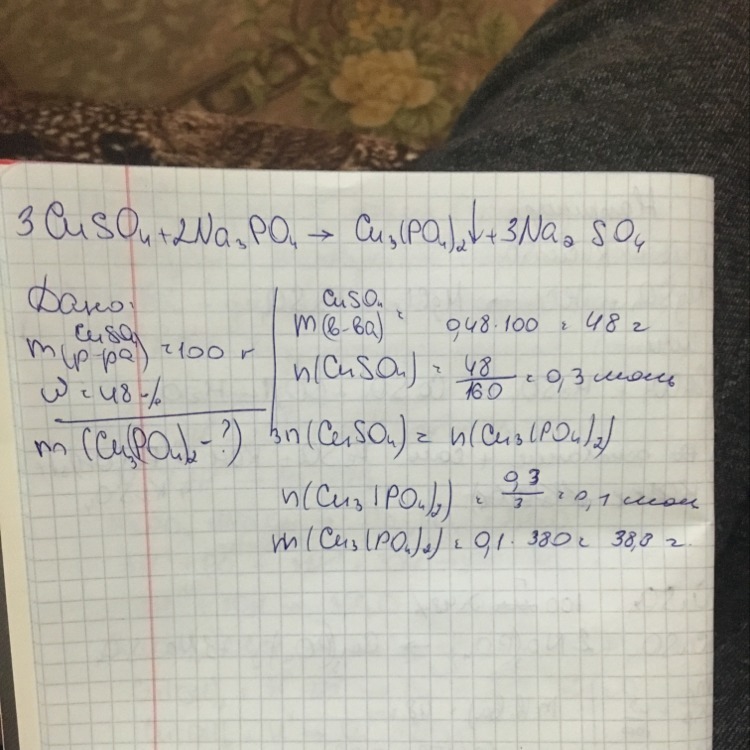 3CuSO₄ + 2Na₃PO₄ → Cu₃(PO₄)₂↓ + 3Na₂SO₄
Дано:
CuSO₄
m(р-ра) = 100 г
ω = 48 %
m (Cu₃(PO₄)₂ - ?)
CuSO₄
m(в-ва) = 0,48 · 100 = 48 г
n(CuSO₄) = 48/160 = 0,3 моль
3n(CuSO₄) = n(Cu₃(PO₄)₂)
n(Cu₃(PO₄)₂) = 0,3/3 = 0,1 моль
m(Cu₃(PO₄)₂) = 0,1 · 380 = 38,8 г.